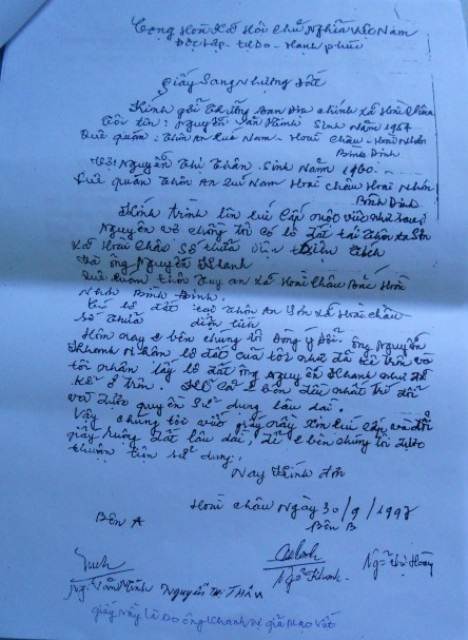 Cộng Hòa Xã Hội Chủ Nghĩa Việt Nam
Độc Lập - Tự Do - Hạnh Phúc
Giấy Sang Nhượng Đất
Kính gởi Trưởng Ban Địa chính xã Hoài Châu
Tôi tên: Nguyễn Văn Sinh năm
Quê quán: Thôn An Quí Nam - Hoài Châu - Hoài Nhơn
Bình Định
Vợ Nguyễn Thị Thân Sinh Năm 1960.
Quê quán Thôn An Quí Nam Hoài Châu Hoài Nhơn
Bình Định
Kính trình lên quí cấp một việc như sau:
Nguyên vợ chồng tôi có lô đất tại thôn An Sơn
Xã Hoài Châu số thửa diện tích
Và ông Nguyễn Khanh
Quê quán thôn Quy an xã Hoài Châu Bắc Hoài
Nhơn Bình Định.
Có lô đất tại thôn An Sơn Xã Hoài Châu
Số thửa diện tích
Hôm nay 2 bên chúng tôi đồng ý đổi. ông Nguyễn
Khanh nhận lô đất của tôi như đã kể trên và
tôi nhận lấy lô đất ông Nguyễn Khanh như đã
kể ở trên. Cả 2 bên đều nhất trí đổi
và được quyền sử dụng lâu dài.
Vậy chúng tôi viết giấy này xin quí cấp đổi
giấy ruộng đất lâu dài, để 2 bên chúng tôi được
thuận tiện sử dụng.
Nay Kính đơn
Hoài Châu Ngày 30/9/1997
Bên A Bên B
Ng. Văn Nguyễn T Thân Ngô Khanh. Ngô Thị
giấy này là do ông Khanh giả mạo viết